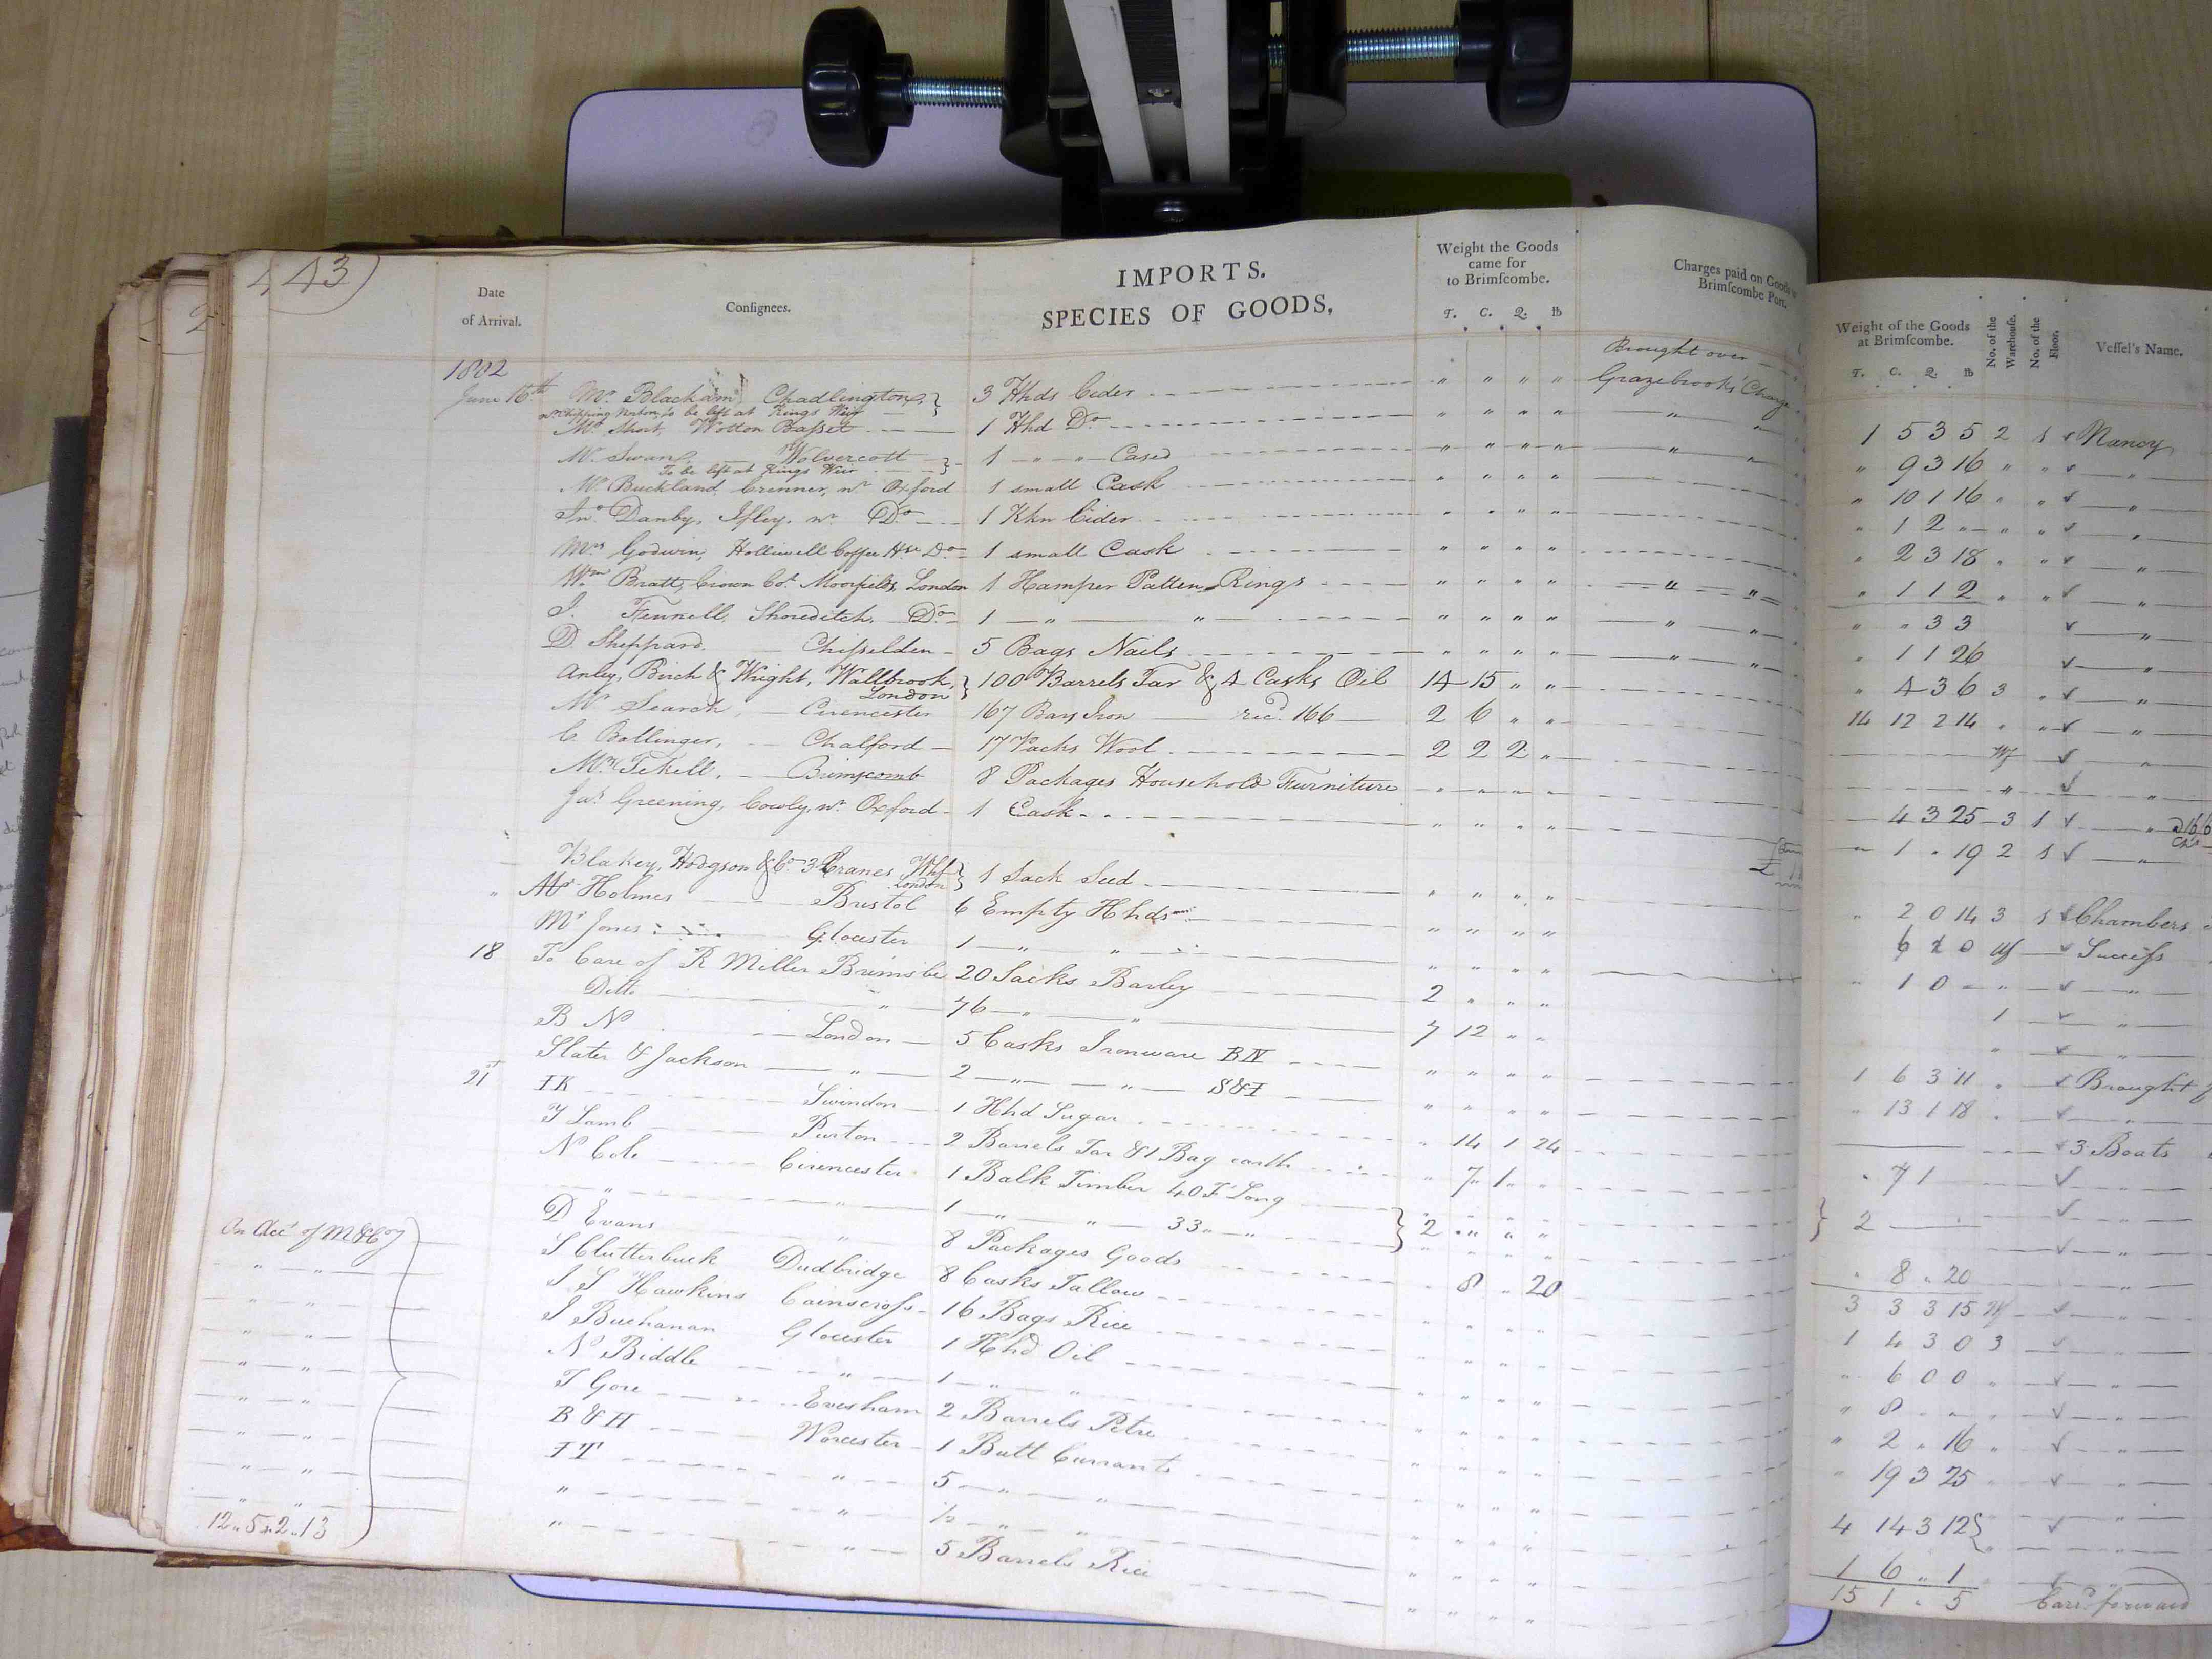 443)
2
IMPORTS.
Date of Arrival.
Consignees.
SPECIES OF GOODS,
Weight the Goods came for to Brimscombe.
T. C. Q. lb
Charges paid on Goods
Brimscombe Port.
Weight of the Goods at Brimscombe.
T. C. Q. lb
No. of the Warehouse.
No. of the Floor.
Vessel's Name.
1802
Brought over
June 16th Mr Blackam Chadlington, } 3 Hhds Cider " " " " Grazebrooks' Charge 1 5 3 5 2 1 ✓ Nancy
nr Chipping Norton, to be left at Kings Weir
Mr Short, Wotton Basset 1 Hhd Do " " " " " " " 9 3 16 " " ✓ "
Mr Swan, Wolvercott } 1 " " Cased " " " " " " " 10 1 16 " " ✓ "
To be left at Kings Weir
Mr Buckland, nr Oxford 1 small Cask " " " " " 1 2 " " " " ✓ "
Jno Danby, Ifley, nr Do 1 Kkn Cider " " " " " 2 3 18 " " ✓ "
Mrs Godwin, Holliwell Coffee Hse Do 1 small Cask " " " " " 1 1 2 " " ✓ "
Wm Bratt, Crown Cot Moorfields, London 1 Hamper Patten Rings " " " " " " " " 3 3 ✓ "
J. Fennell, Shoreditch Do 1 " " " " " " " " " 1 1 26 ✓ "
D Sheppard Chiselden 5 Bags Nails " " " " " " " 4 3 6 3 " ✓ "
Anley, Birch & Wright, Wallbrook, London } 100 Barrels Tar & 4 Casks Oil 14 15 " " 14 12 2 14 " " ✓ "
Mr Search Cirencester 167 Bars Iron recd. 166 2 6 " " Wf ✓ "
C Ballinger, Chalford 17 Packs Wool 2 2 2 " " ✓ "
Mr Tekell, Brimscomb 8 Packages Household Furniture " " " " 4 3 25 3 1 ✓ "
Jas Greening, Cowly, nr Oxford 1 Cask " " " " " 1 " 19 2 1 ✓
Blakey, Hodgson & Co 3 Cranes Whf London } 1 Sack Seed " " " " " 2 0 14 3 1 ✓ Chambers
" Mr Holmes Bristol 6 Empty Hhds " " " " 6 2 0 Wf ✓ Success
Mr Jones Glocester 1 " " " " " " " 1 0 " " ✓ "
18 To Care of R Miller Brimsbe 20 Sacks Barley 2 " " " 1 ✓ "
Ditto " 76 " " 7 12 " " " ✓ "
B N London 5 Casks Ironware BN " " " " 1 6 3 11 " ✓ Brought
Slater & Jackson " 2 " " S&I " " " " " 13 1 18 " ✓ "
21st IK Swindon 1 Hhd Sugar " 14 1 24 ✓ 3 Boats
T Lamb Purton 2 Barrels Tar & 1 Bag earth " 7 1 " " 7 1 ✓
N Cole Cirencester 1 Balk Timber 40 Ft Long } 2 " " " } 2 ✓ "
" " 1 " " 33 " " ✓ "
D Evans " 8 Packages Goods " 8 " 20 " 8 " 20 "
On Acct of M&Co S Clutterbuck Dudbridge 8 Casks Tallow " " " " 3 3 3 15 Wf ✓
" " J S Hawkins Cainscross 16 Bags Rice " " " " 1 4 3 0 3 ✓ "
" " J Buchanan Glocester 1 Hhd Oil " " " " " 6 0 0 " ✓ "
" " N Biddle " 1 " " " " " " " 8 " " ✓ "
" " T Gore Evesham 2 Barrels Petre " " " " " 2 " 16 " ✓ "
" " B & H Worcester 1 Butt Currants " " " " " 19 3 25 " ✓ "
" " IT " 5 " " " " " " 4 14 3 12 } ✓ "
" " " " 1/2 " " " " " "
" " " " 5 Barrels Rice " " " " 1 6 " 1 ✓
12 " 5 " 2 " 13
15 1 " 5 Carrd. forward